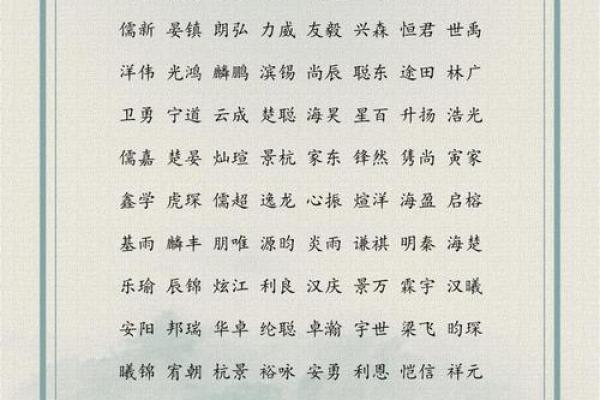 儒新 晏镇 朗弘 力威 友毅 兴森 恒君 世禹
洋伟 光鸿 麟鹏 滨锡 尚辰 聪东 途田 林广
卫勇 宁道 云成 楚聪 海昊 星百 升扬 浩光
儒嘉 楚晏 灿瑄 景杭 家东 锋然 隽尚 寅家
鑫学 虎琛 儒超 逸龙 心振 煊洋 海盈 启榕
基雨 麟丰 朋唯 源昀 炎雨 谦祺 明秦 海楚
乐瑜 辰锦 炫江 利良 汉庆 景万 霖宇 汉曦
安阳 邦瑞 华卓 纶聪 卓瀚 宇世 梁飞 昀琛
曦锦 宥朝 杭景 裕咏 安勇 利恩 恺信 祥元